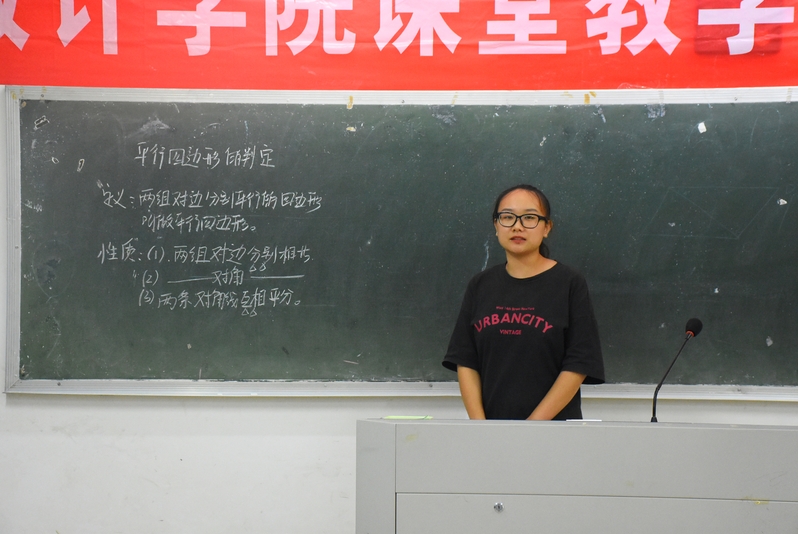 设计学院课堂教学
平行四边形的判定
定义：两组对边分别平行的四边形
叫做平行四边形。
性质：(1) 两组对边分别相等
(2) ——— 对角 ———
(3) 两条对角线互相平分。
URBANCITY
VINTAGE